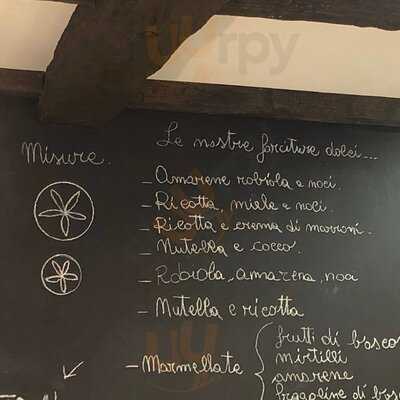 Misure.
Le nostre farciture dolci...
- Amarene robiola e noci.
- Ricotta, miele e noci.
- Ricotta e crema di marroni.
- Nutella e cocco.
- Robiola, amarena, noci
- Nutella e ricotta
- Marmellate
frutti di bosco
mirtilli
amarene
fragoline di bosc